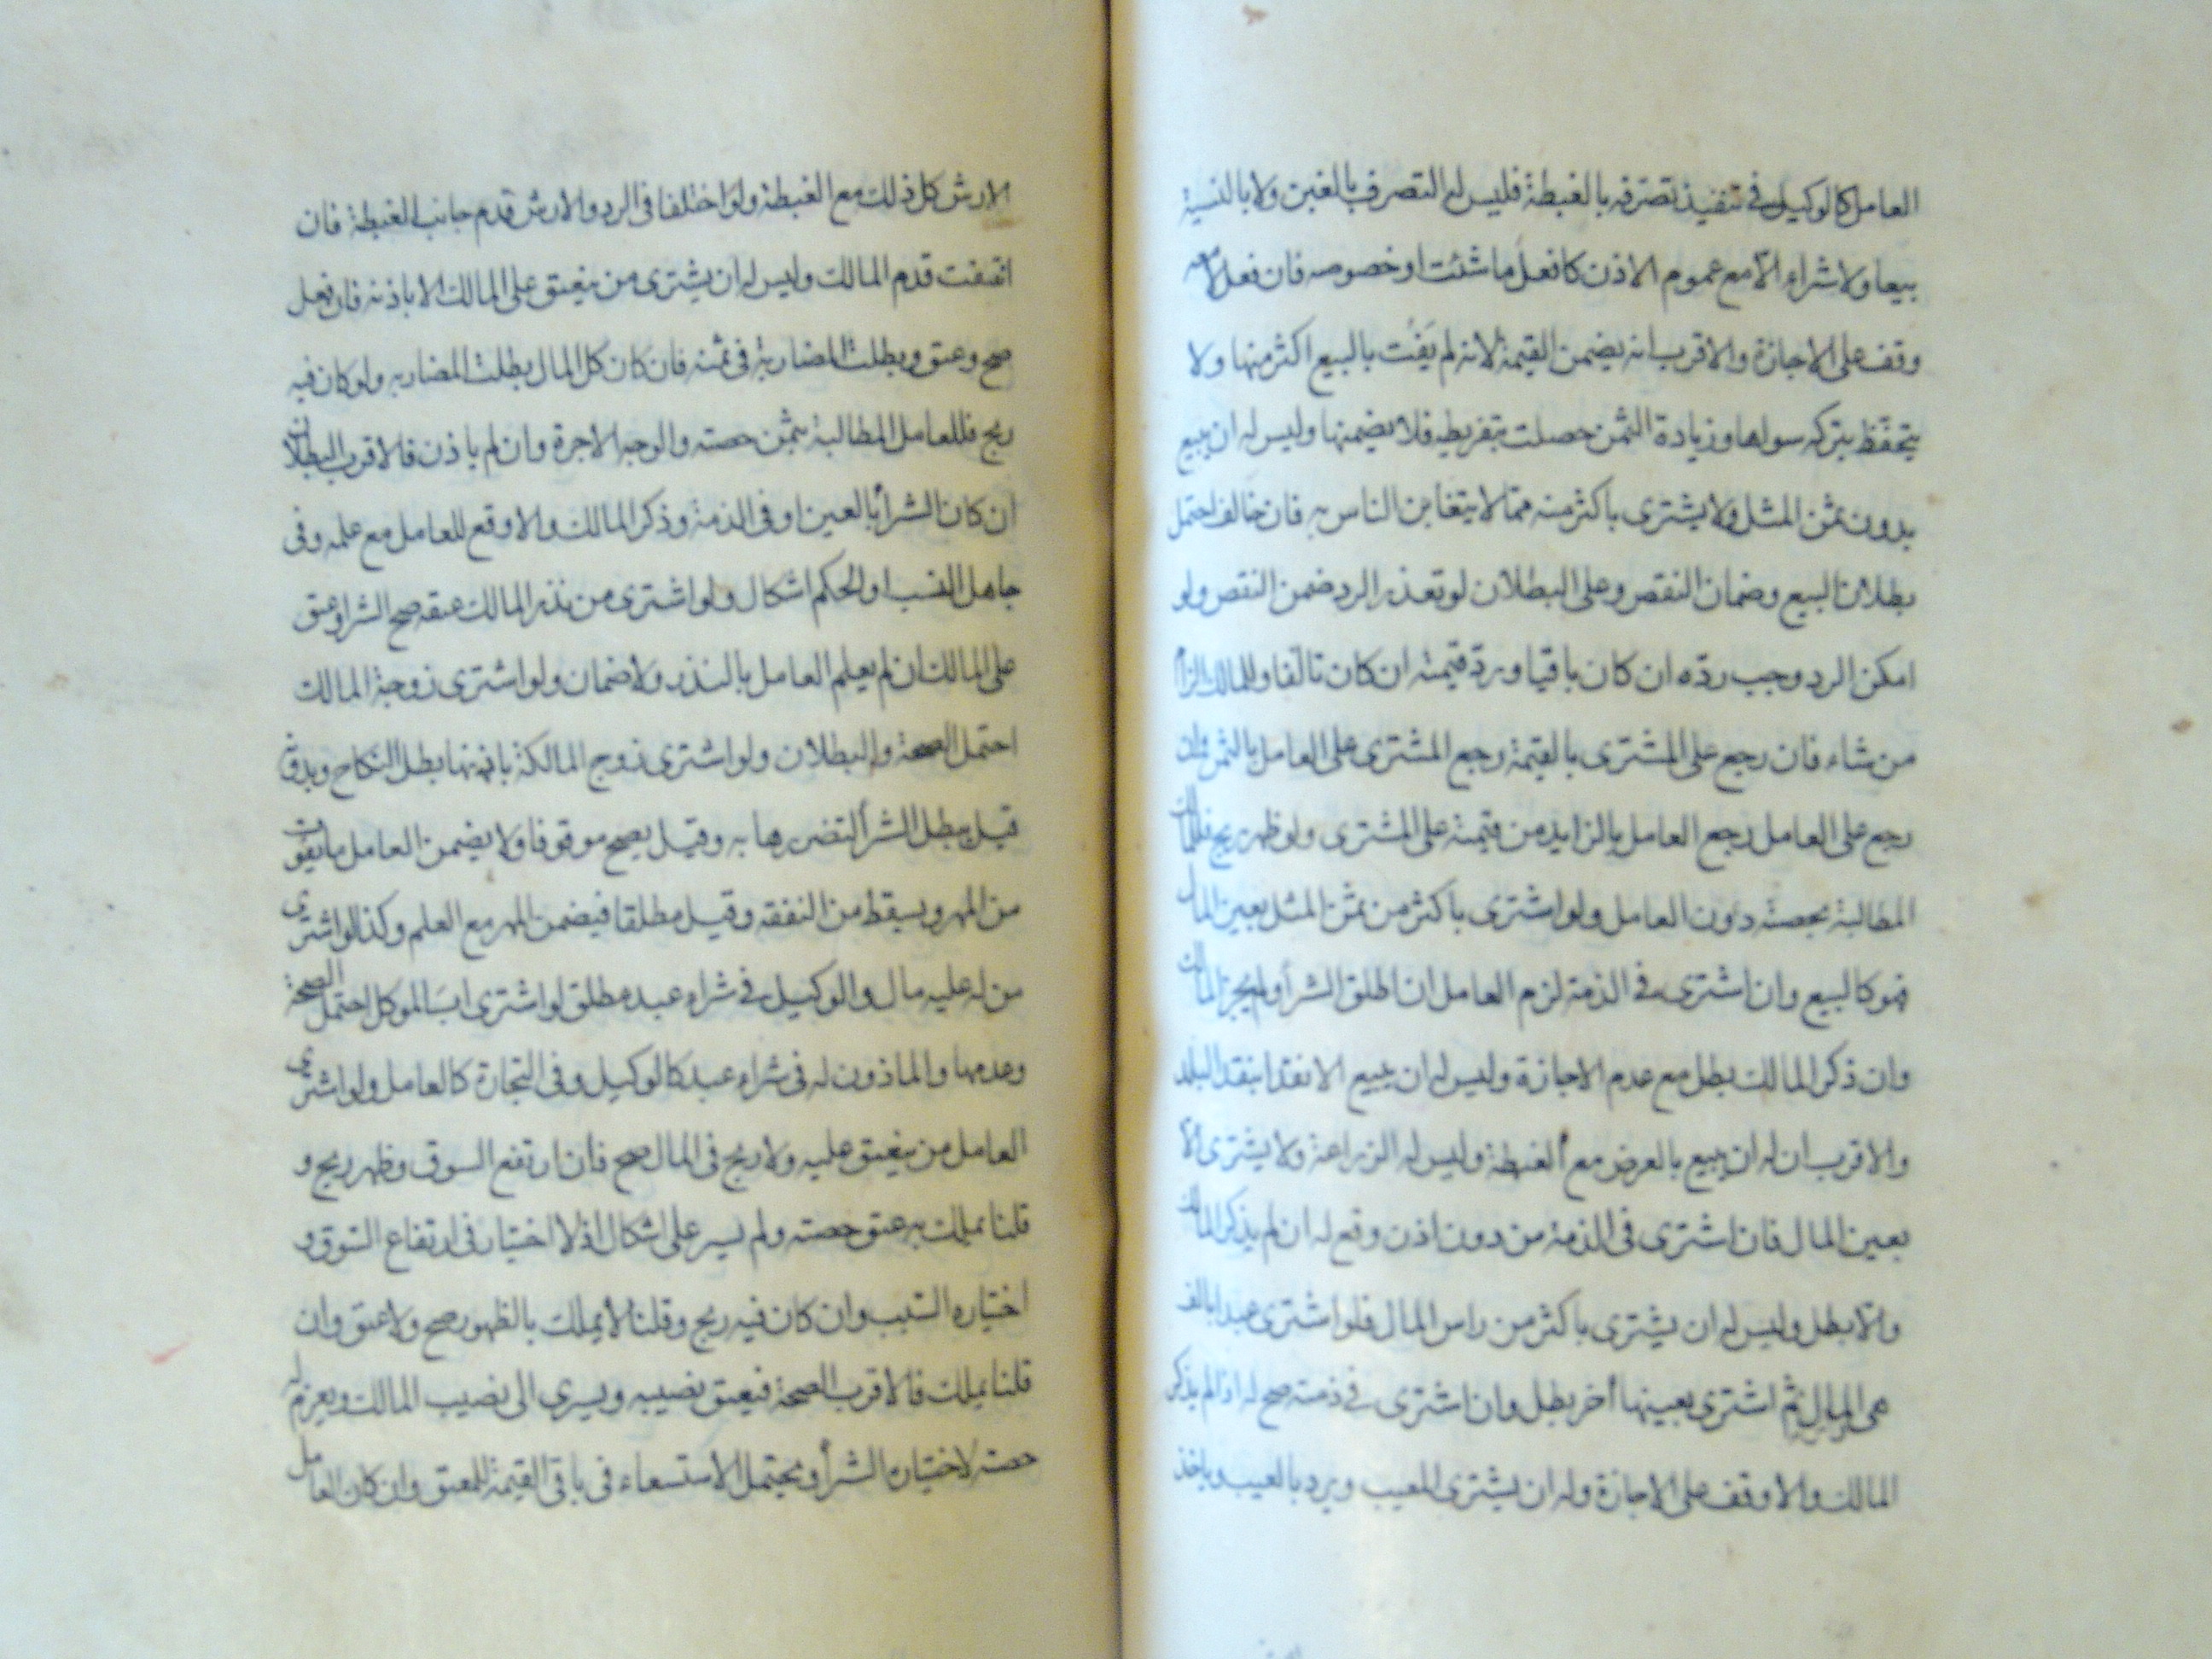 العامل كالوكيل في تنفيذ تصرفه بالغبطة فليس له التصرف بالغبن ولا بالنسية
بيعا ولا شراء الا مع عموم الاذن كافعل ما شئت او خصوصه فان فعل لا معه
وقف على الاجازة والاقرب انه يضمن القيمة لانه لم يفت بالبيع اكثر منها ولا
يتحفظ بتركه سواها وزيادة الثمن حصلت بتفريطه فلا يضمنها وليس له ان يبيع
بدون ثمن المثل ولا يشترى باكثر منه مما لا يتغابن الناس به فان خالف احتمل
بطلان البيع وضمان النقص وعلى البطلان لو تعذر الرد ضمن النقص ولو
امكن الرد وجب رده ان كان باقيا ورد قيمته ان كان تالفا وللمالك الزام
من شاء فان رجع على المشترى بالقيمة رجع المشترى على العامل بالثمن وان
رجع على العامل رجع العامل بالزايد من قيمته على المشترى ولو ظهر ربح فللمالك
المطالبة بحصته دون العامل ولو اشترى باكثر من ثمن المثل بعين المال
فهو كالبيع وان اشترى في الذمة لزم العامل ان اطلق الشرأ ولم يجز المالك
وان ذكر المالك بطل مع عدم الاجازة وليس له ان يبيع الا نقدا بنقد البلد
والاقرب ان له ان يبيع بالعرض مع الغبطة وليس له الزراعة ولا يشترى الا
بعين المال فان اشترى فى الذمة من دون اذن وقع له ان لم يذكر المالك
والا بطل وليس له ان يشترى باكثر من راس المال فلو اشترى عبدا بالف
هى المال ثم اشترى بعينها أخر بطل وان اشترى في ذمته صح له اذا لم يذكر
المالك والا وقف على الاجازة وله ان يشترى المعيب ويرد بالعيب وياخذ
الارش كل ذلك مع الغبطة ولو اختلفا فى الرد والارش قدم جانب الغبطة فان
اتفقت قدم المالك وليس له ان يشترى من ينعتق على المالك الا باذنه فان فعل
صح وعتق وبطلت المضاربة فى ثمنه فان كان كل المال بطلت المضاربه ولو كان فيه
ربح فللعامل المطالبة بثمن حصته والوجه الاجرة وان لم ياذن فالاقرب البطلان
ان كان الشرأ بالعين او فى الذمة وذكر المالك والا وقع للعامل مع علمه وفى
جاهل النسب او الحكم اشكال ولو اشترى من نذر المالك عتقه صح الشرا وعتق
على المالك ان لم يعلم العامل بالنذر ولا ضمان ولو اشترى زوجة المالك
احتمل الصحة والبطلان ولو اشترى زوج المالكة باذنها بطل النكاح وبدونه
قيل يبطل الشرأ لتضررها به وقيل يصح موقوفا ولا يضمن العامل ما يفوت
من المهر ويسقط من النفقه وقيل مطلقا فيضمن المهر مع العلم وكذا لو اشترى
من له عليه مال والوكيل في شراء عبد مطلق لو اشترى اب الموكل احتمل الصحة
وعدمها والماذون له فى شراء عبد كالوكيل وفى التجارة كالعامل ولو اشترى
العامل من ينعتق عليه ولا ربح فى المال صح فان ارتفع السوق وظهر ربح و
قلنا يملك به عتق حصته ولم يسر على اشكال اذ لا اختيار فى ارتفاع السوق و
اختياره السبب وان كان فيه ربح وقلنا لا يملك بالظهور صح ولا عتق وان
قلنا يملك فالاقرب الصحة فيعتق نصيبه ويسرى الى نصيب المالك ويغرم له
حصته لاختياره الشرأ ويحتمل الاستسعاء فى باقى القيمة للمعتق وان كان العامل